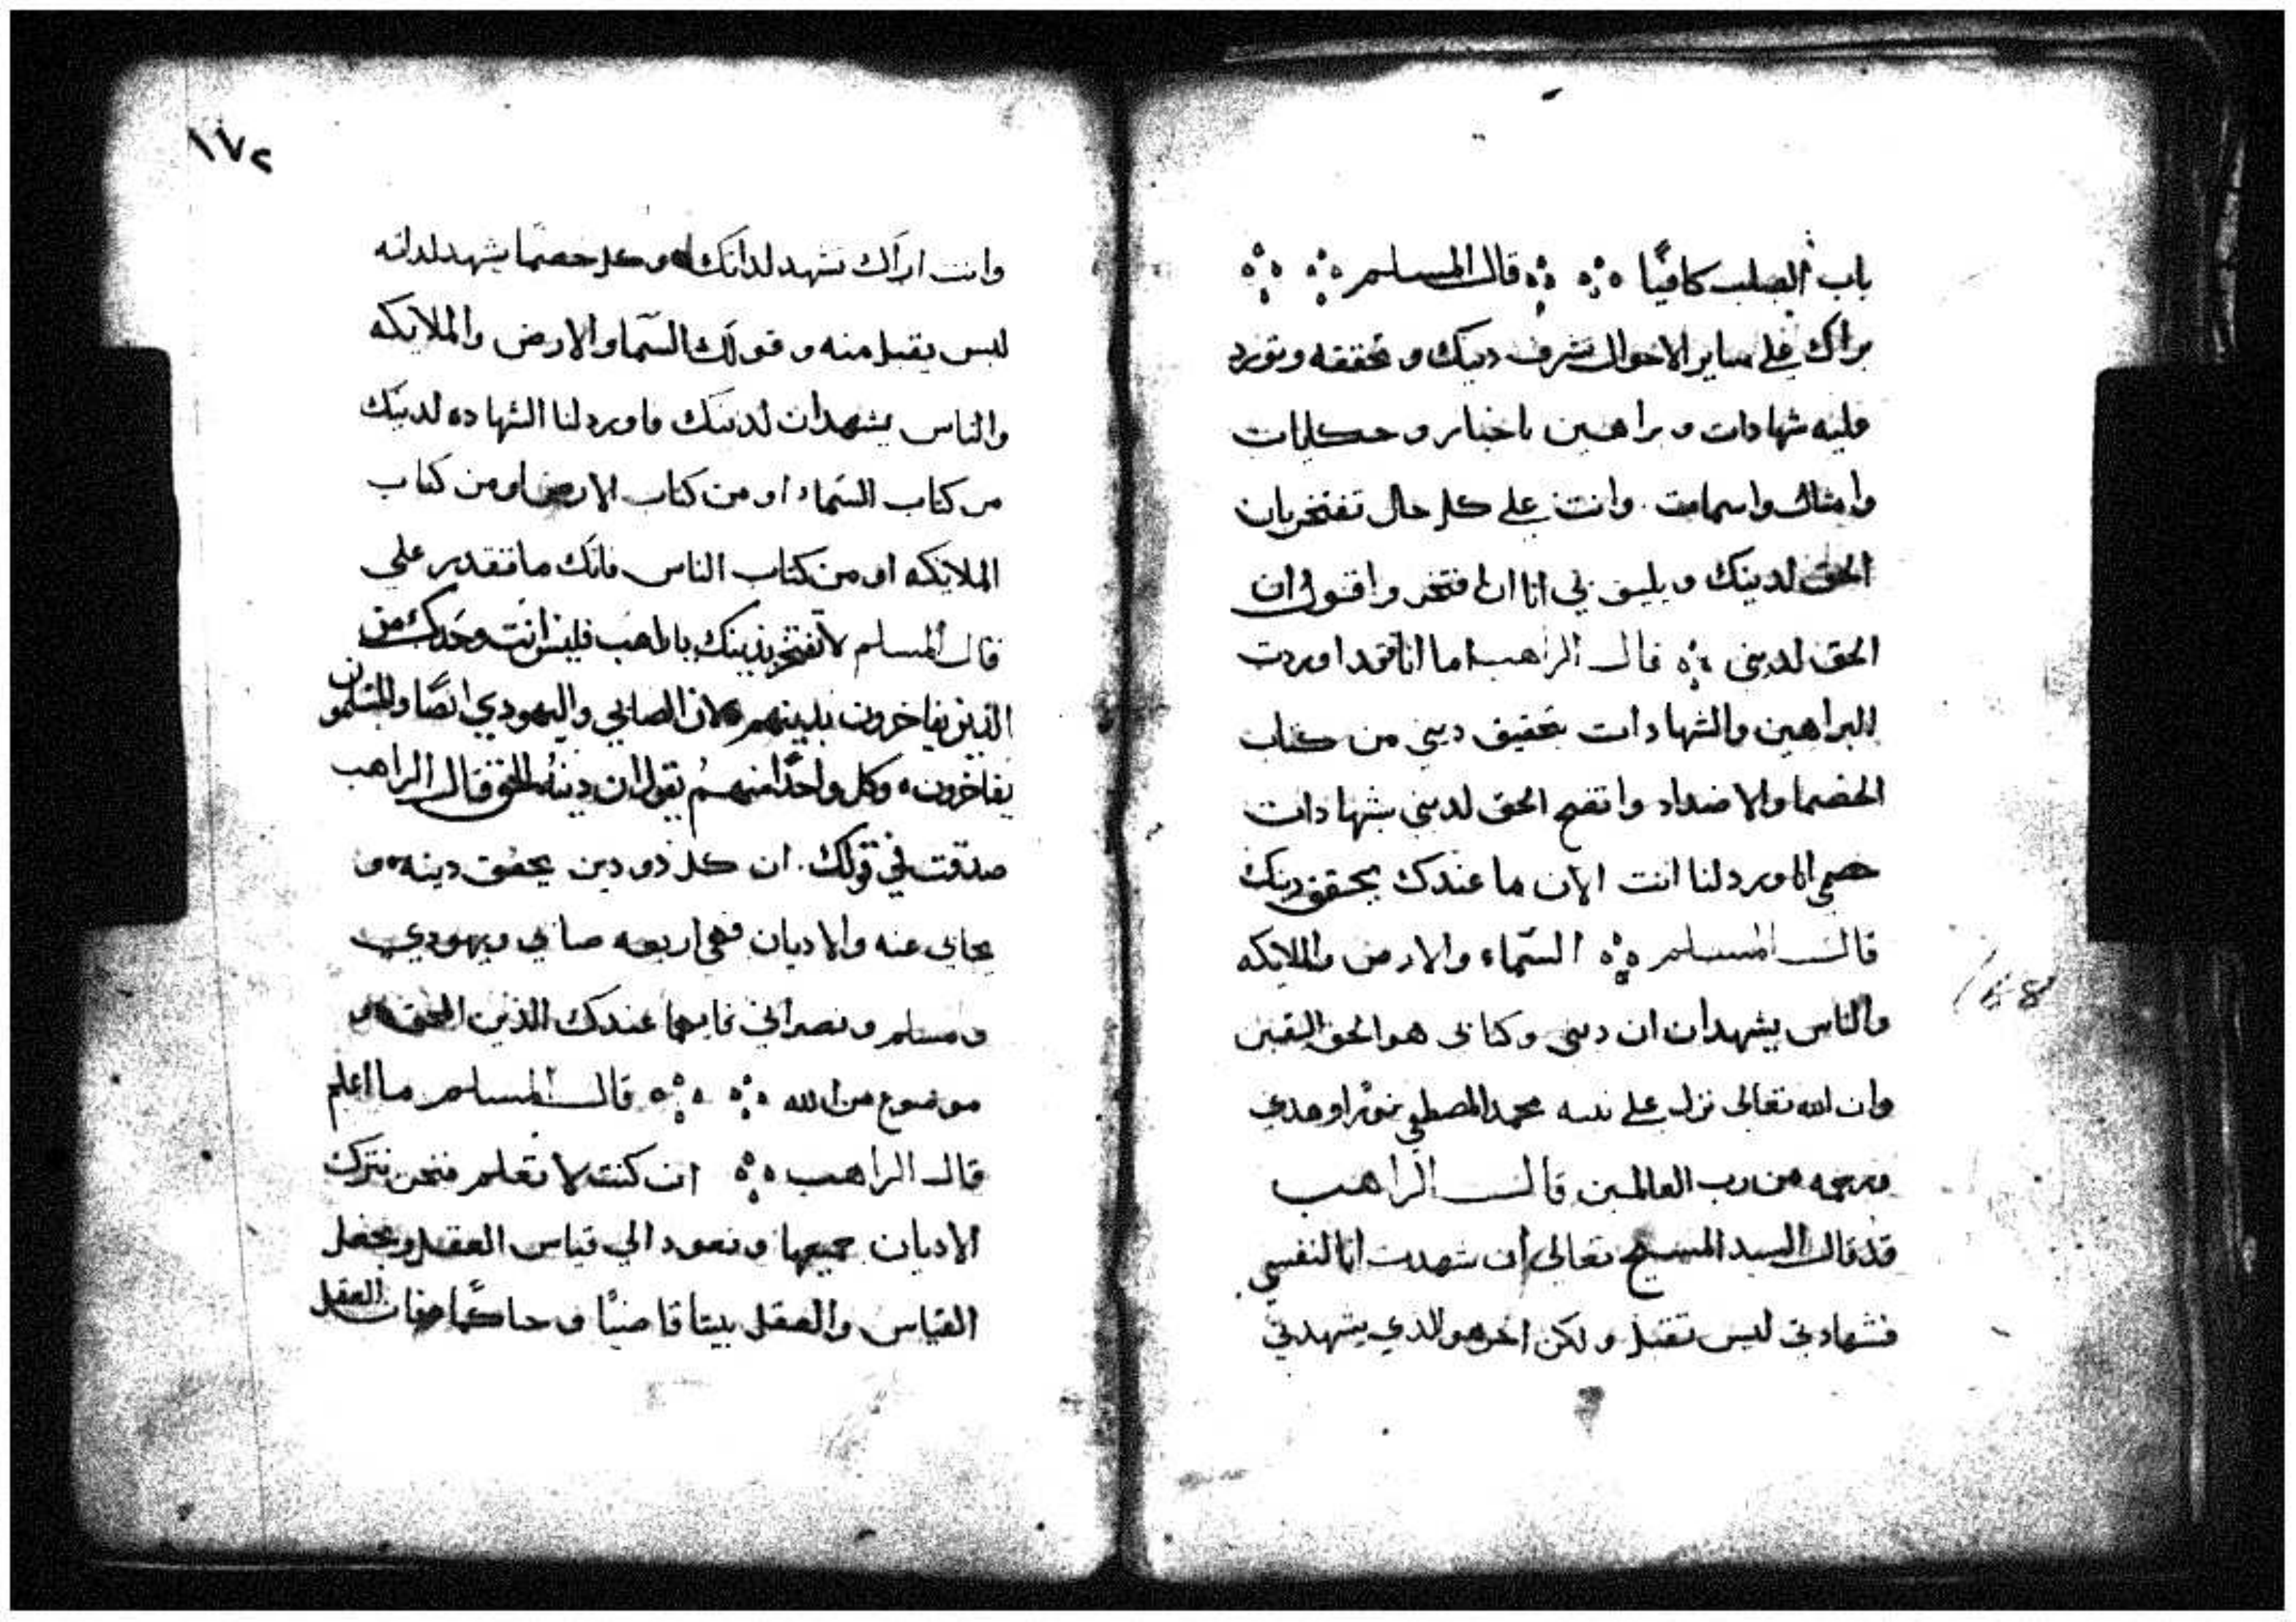 باب الصلب كافيًا قال المسلم
نراك على ساير الاحوال تشرف دينك و تحققه وتورد
عليه شهادات و براهين باخبار و حكايات
وامثال واسمامت وانت على كل حال تفتخر بان
الحق لدينك ويليق بي انا ان افتخر واقول ان
الحق لديني قال الراهب اما انا فقد اوردت
البراهين والشهادات بتحقيق ديني من كتاب
الخصما والاضداد واتضح الحق لديني بشهادات
خصمي فاورد لنا انت الان ما عندك يحقق دينك
قال المسلم السّماء والارض والملايكه
والناس يشهدان ان ديني وكتابي هو الحق اليقين
وان الله تعالى نزل على نبيه محمد المصطفى نورًا وهدي
ورحمه من رب العالمين قال الراهب
قد قال السيد المسيح تعالى ان شهدت انا لنفسي
فشهادتي ليس تقبل ولكن اخر هو الذي يشهد لي
١٧٢
وانت اراك تشهد لذاتك وكل خصمًا يشهد لذاته
ليس يقبل منه و قولك السّما والارض والملايكه
والناس يشهدان لدينك فاورد لنا الشهاده لدينك
من كتاب السّماء او من كتاب الارض او من كتاب
الملايكه او من كتاب الناس فانك ما تقدر على
قال المسلم لا تفتخر بدينك يا راهب فليس انت وحدك من
الذين يفاخرون بدينهم لان الصابي واليهودي ايضًا والمسلمون
يفاخرون وكل واحدًا منهم يقول ان دينه الحق فقال الراهب
صدقت في قولك ان كل ذو دين يحقق دينه و
يحابي عنه والاديان فهي اربعه صابي ويهودي
ومسلم و نصراني فايهما عندك الذين الحق هو
موضوع من الله قال المسلم ما اعلم
قال الراهب ان كنت لا تعلم فنحن نترك
الاديان جميعها و نعود الي قياس العقل ونجعل
القياس والعقل بيننا قاضيًا و حاكمًا فان العقل